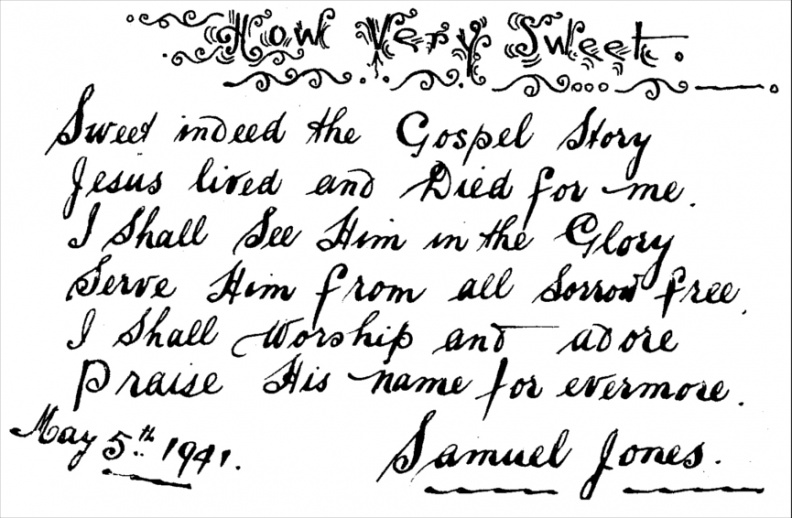 How Very Sweet.
Sweet indeed the Gospel Story
Jesus lived and Died for me.
I Shall See Him in the Glory
Serve Him from all Sorrow free.
I Shall Worship and adore
Praise His name for evermore.
May 5th 1941.
Samuel Jones.